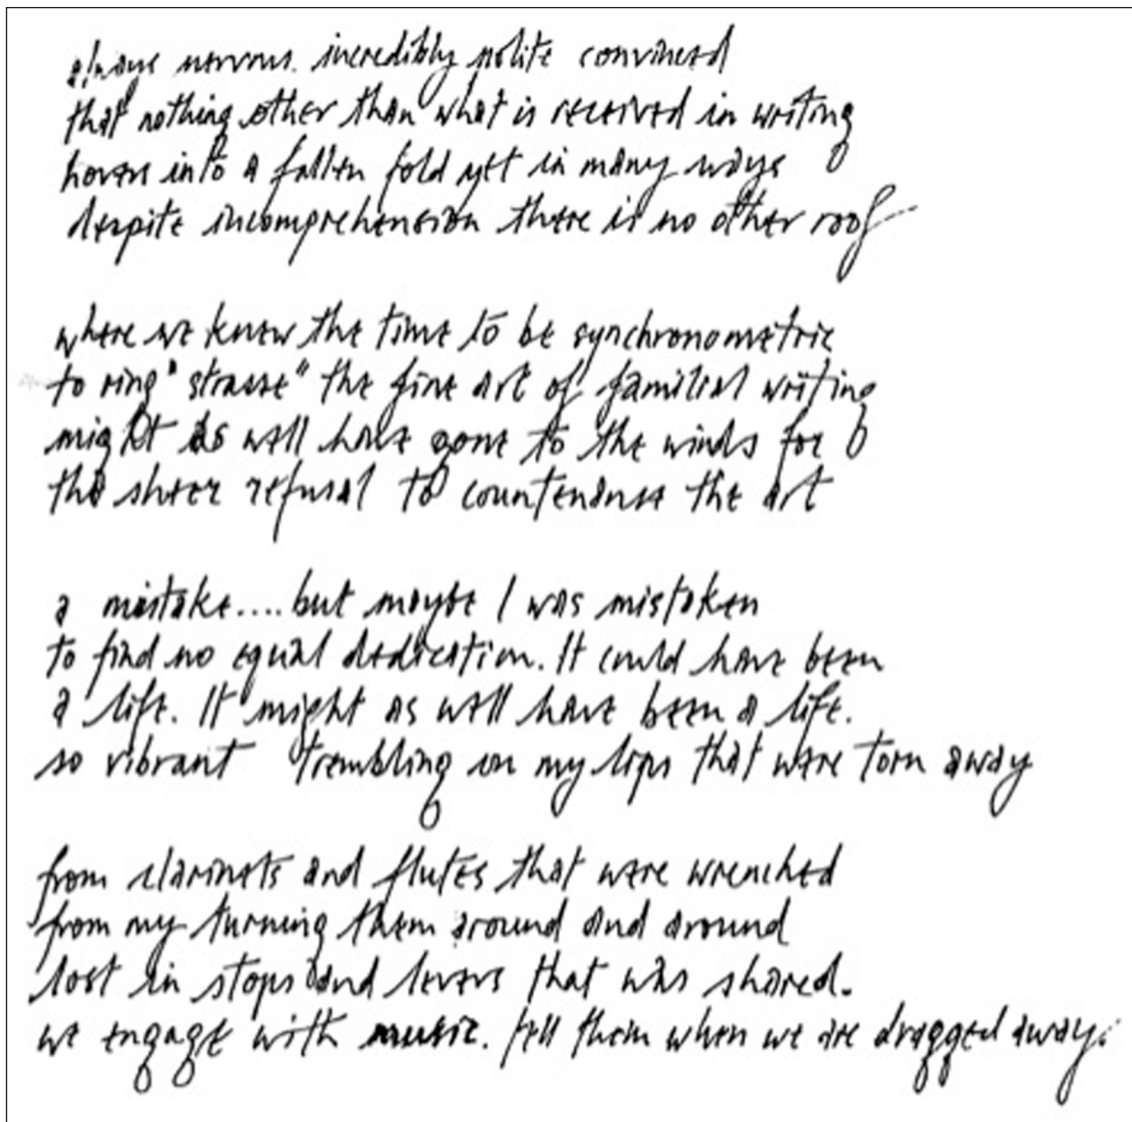 always nervous. incredibly polite convinced
that nothing other than what is received in writing
hovers into a fallen fold yet in many ways
despite incomprehension there is no other roof
where we knew the time to be synchronometric
to ring "strasse" the fine art of familial writing
might as well have gone to the winds for
the sheer refusal to countenance the art
a mistake.... but maybe I was mistaken
to find no equal dedication. It could have been
a life. It might as well have been a life.
so vibrant trembling on my lips that were torn away
from clarinets and flutes that were wrenched
from my turning them around and around
lost in stops and levers that was shared.
we engage with music. tell them when we are dragged away.